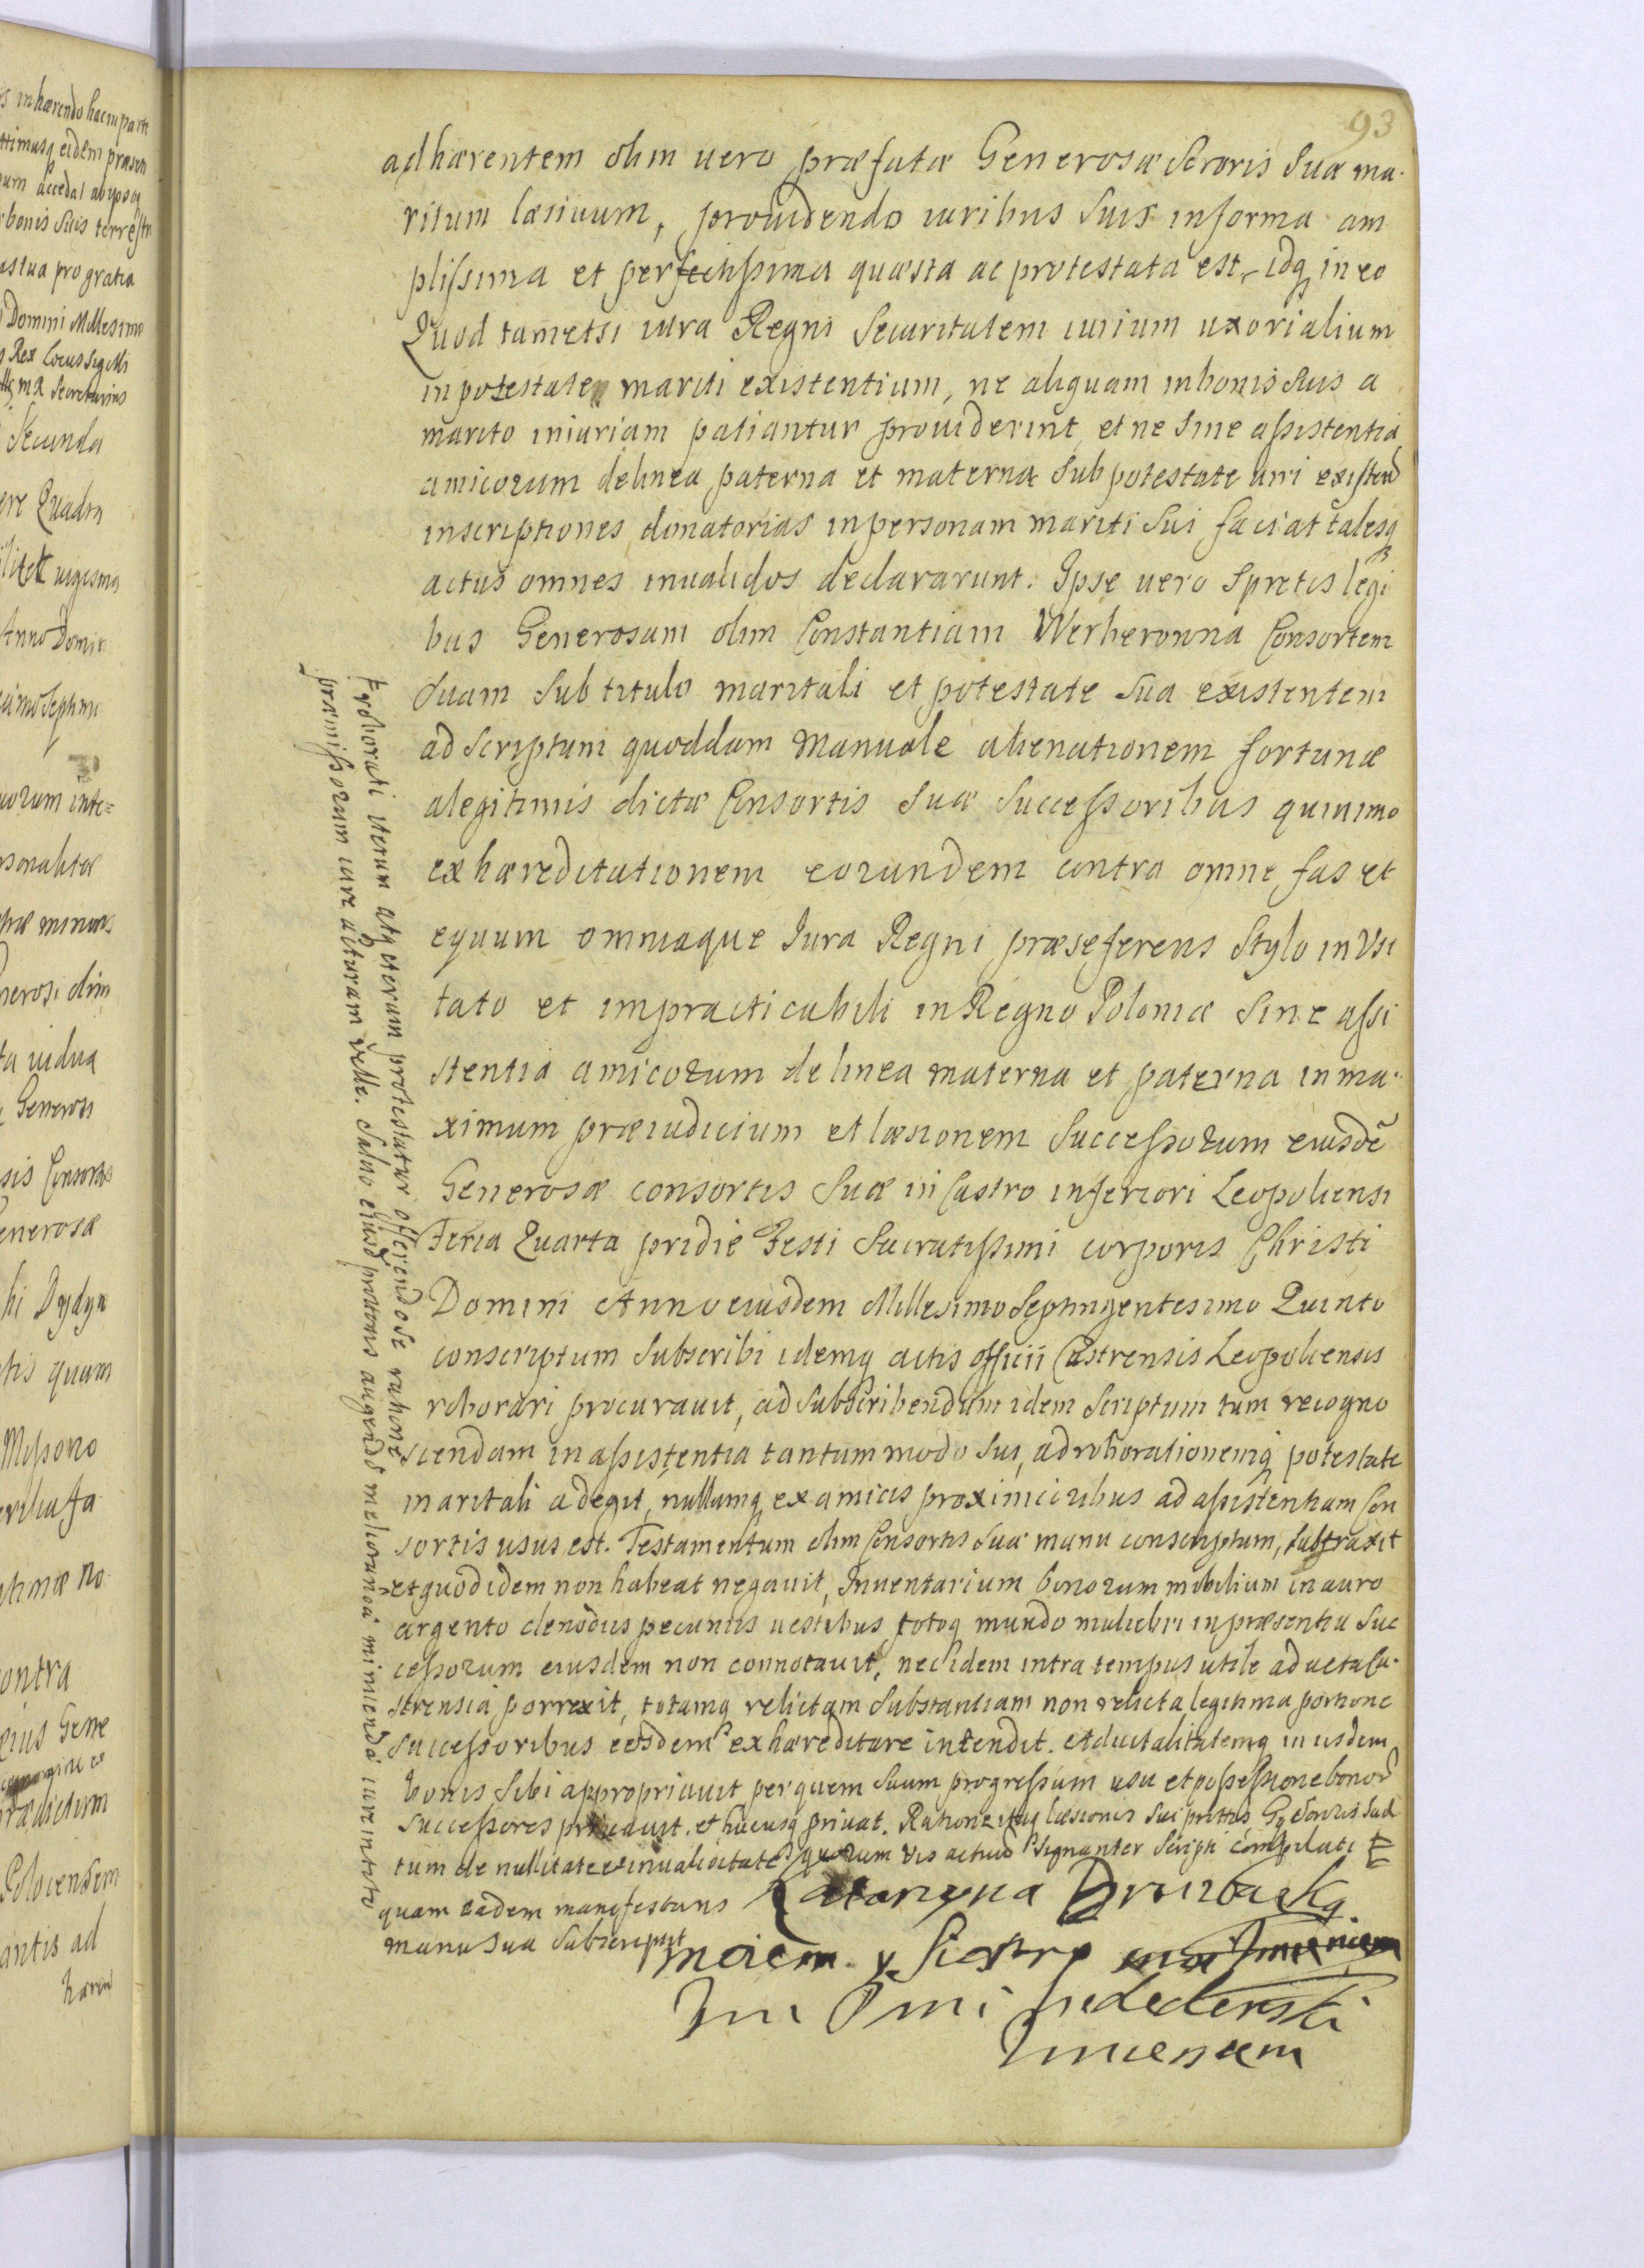 93
adhærentem olim uero præfatæ Generosæ Sororis Suæ ma-
ritum læsiuum, prouidendo iuribus Suis in forma am
plissima et perfectissima quæsta ac protestata est, idq in eo
Quod tametsi iura Regni Securitatem iurium uxorialium
in potestate mariti existentium, ne aliquam in bonis Suis a
marito iniuriam patiantur prouiderint, et ne Sine assistentia
amicorum de linea paterna et materna Sub potestate uiri existend
inscriptiones donatorias in personam mariti Sui faciat talesq
actus omnes inualidos declararunt. Ipse uero Spretis legi
bus Generosam olim Constantiam Werheronna Consortem
Suam Sub titulo maritali et potestate Sua existentem
ad Scriptum quoddam Manuale alienationem fortunæ
a legitimis dictæ Consortis Suæ Successoribus quinimo
exhæreditationem eorundem contra omne fas et
equum omniaque Iura Regni præseferens Stylo inusi
tato et impracticabili in Regno Poloniæ Sine assi
stentia amicorum de linea materna et paterna in ma-
ximum præiudicium et læsionem Successorum eiusdē
Generosæ consortis Suæ in Castro inferiori Leopoliensi
Feria Quarta pridie Festi Sacratissimi corporis Christi
Domini Anno eiusdem Millesimo Septingentesimo Quinto
conscriptum Subscribi idemq actis officii Castrensis Leopoliensis
roborari procurauit, ad Subscribendum idem Scriptum tum recogno
scendam in assistentia tantummodo Sui, ad roborationemq potestate
maritali adegit, nullumq ex amicis proximioribus ad assistentiam Con
sortis usus est. Testamentum olim Consortis Suæ manu conscriptum, Subtraxit
et quod idem non habeat negauit, Inuentarium bonorum mobilium in auro
argento clenodiis pecuniis uestibus totoq mundo muliebri in præsentia Suc
cessorum eiusdem non connotauit, nec idem intra tempus utile ad acta Ca-
strensia porrexit, totamq relictam Substantiam non relicta legitima portione
Successoribus eiusdem exhæreditare intendit. et aduitalitatemq in iisdem
bonis Sibi appropriauit per quem Suum progressum usu et possessione bonor
Successores priuauit. et hucusq priuat. Ratione itaq læsionis
tum de nullitate et inualiditate quorum uis actuum Signanter Scripti
quam eadem manifestans
manu Sua Subscripsit
Katarzyna Druzbacka
Imieniem y Siostry
Im Pani
Imieniem
roborati iterum atq iterum protestatur offerendo se ratione
præmissorum iure acturam uelle. Saluo eiusd prottonis augendæ meliorandæ minuendæ iure in toto